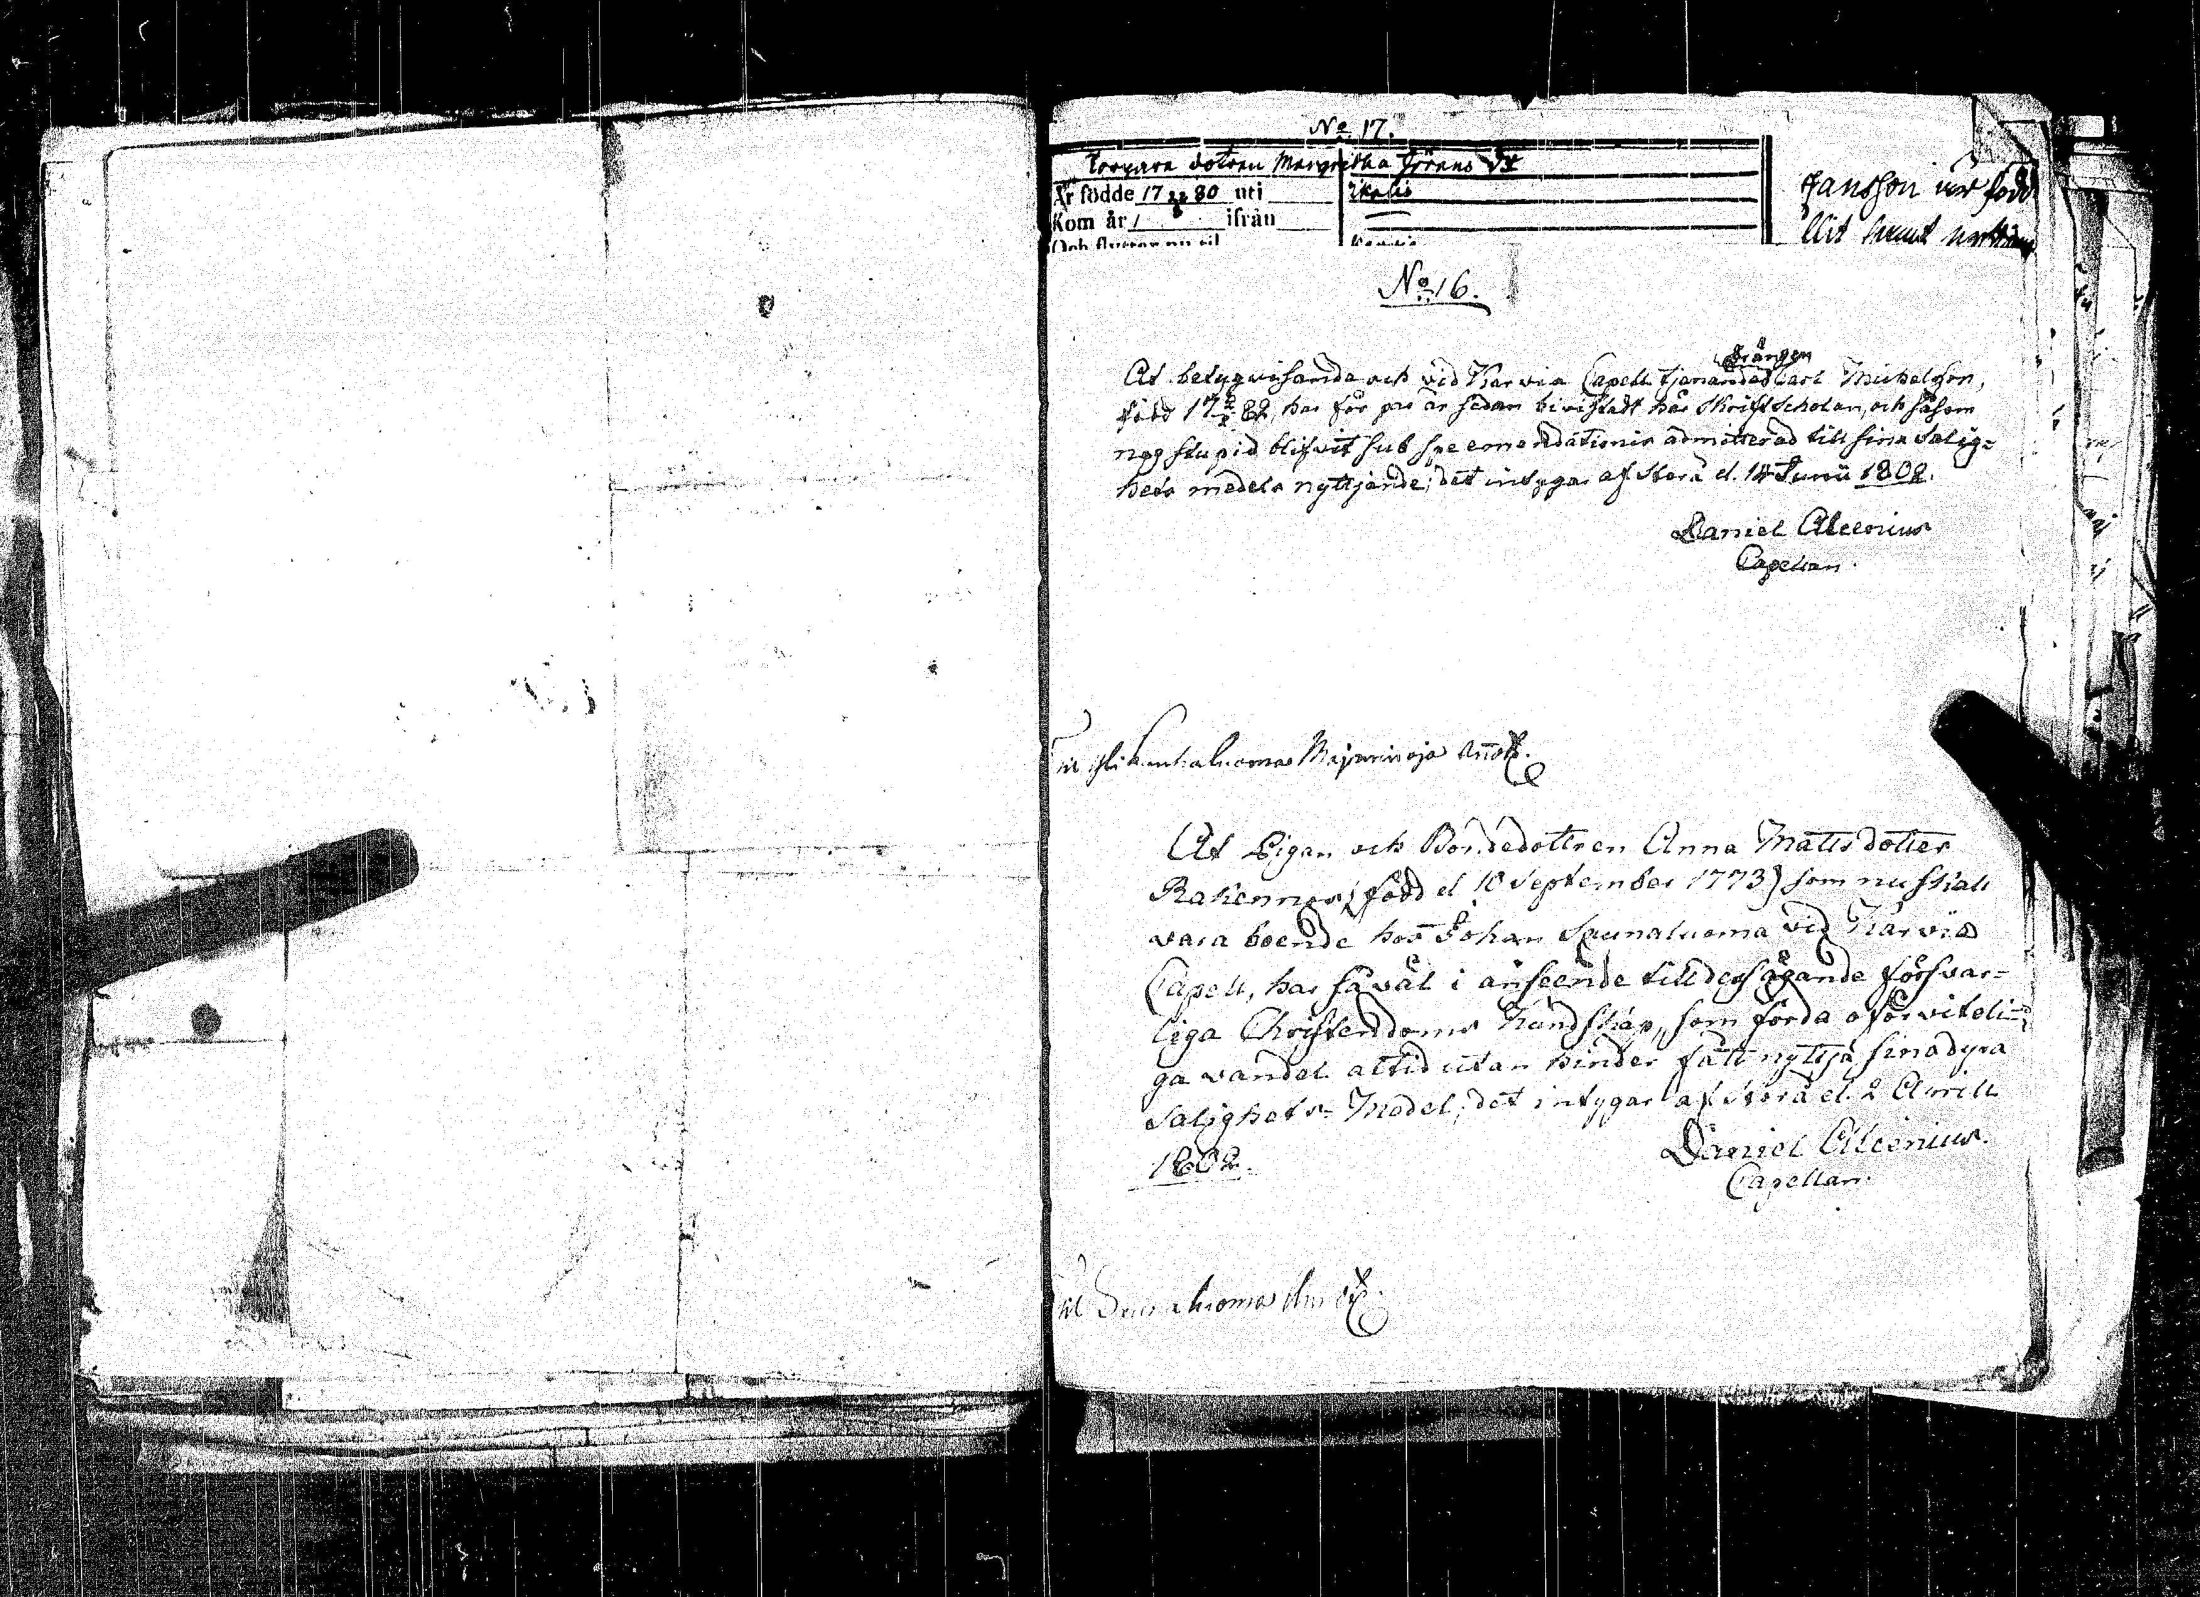 No 17.
dotren Margretha Jörans Dr
Är födde 17 22/8 80 uti Ikalis
Kom år 1 ifrån
Och flyttar nu til
Jansson
No 16.
Drängen
At betygvisande och vid Karvia Capell tjenande Carl Michelsson,
född 17 82, har för par år sedan bivistadt här Skriftscholan, och såsom
nog stupid blifvit sub spe emendationis admitterad till sina Salig=
hets medels nyttjande; det intygar af Storå d. 14 Junii 1802.
Daniel Alcenius
Capellan.
til
At Pigan och Bondedottren Anna Mattsdotter
Rakennus (född d 10 September 1773) som nu skall
vara boende hos Johan Saunaluoma vid Karvia
Capell, har såväl i anseende till dess ägande försvar=
liga Christendoms Kundskap, som förda oförviteli=
ga vandel altid utan hinder fått nyttja sina dyra
Salighets= Medel; det intygar af Storå d. 2 Aprill
1802.
Daniel Alcenius.
Capellan.
til Saunaluoma